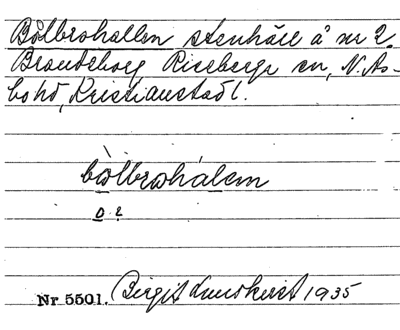 Bölbrohallen stenhäll å nr 2.
Brandeborg Riseberga sn, N. Ås-
bo hd, Kristianstad l.
bölbrohálem
o 2
Nr 5501. Birgit Lundkvist 1935